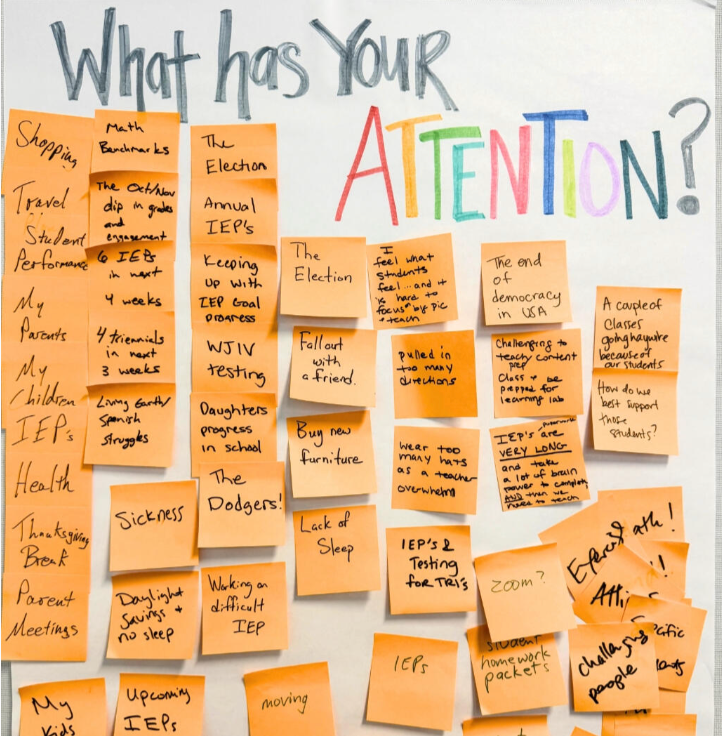 What has Your
ATTENTION?
Shopping
Travel
Student
Performance
My
Parents
My
Children
IEP's
Health
Thanksgiving
Break
Parent
Meetings
My
Kids
Math
Benchmarks
The Oct/Nov
dip in grades
and
engagement
6 IEPs
in next
4 weeks
4 triennials
in next
3 weeks
Living Earth/
Spanish
struggles
Sickness
Daylight
Savings +
no sleep
Upcoming
IEPs
The
Election
Annual
IEP's
Keeping
Up With
IEP Goal
progress
WJIV
testing
Daughters
progress
in school
The
Dodgers!
Working on
difficult
IEP
moving
The
Election
Fallout
with
a friend.
Buy new
furniture
Lack of
Sleep
I
feel what
students
feel... and it
is hard to
focus by pic
+ teach
pulled in
too many
directions
wear too
many hats
as a teacher
overwhelm
IEP's &
Testing
for TRI's
IEPs
The end
of
democracy
in USA
Challenging to
teach content
prep
Class + be
prepped for
learning lab
IEP's are
VERY LONG
and take
a lot of brain
power to complete
AND then we
need to teach
Zoom?
student
homework
packets
A couple of
classes
going haywire
because of
our students
How do we
best support
those
students?
challenging
people